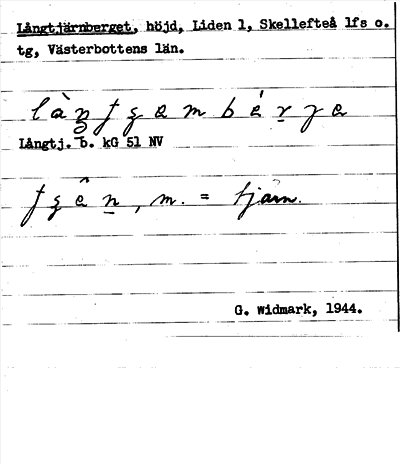 Långtjärnberget, höjd, Liden 1, Skellefteå lfs o.
tg, Västerbottens län.
Långtj. b. kG 51 NV
, m. = tjärn.
G. Widmark, 1944.